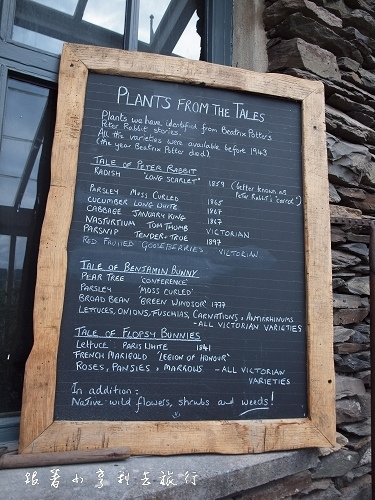 PLANTS FROM THE TALES
Plants we have identified from Beatrix Potter's
Peter Rabbit stories.
All the varieties were available before 1943
(the year Beatrix Potter died)
TALE OF PETER RABBIT
RADISH 'LONG SCARLET' 1859 (better known as
Peter Rabbit's 'carrot')
PARSLEY MOSS CURLED 1865
CUCUMBER LONG WHITE 1867
CABBAGE JANUARY KING 1867
NASTURTIUM TOM THUMB VICTORIAN
PARSNIP TENDER + TRUE 1897
RED FRUITED GOOSEBERRIES VICTORIAN
TALE OF BENJAMIN BUNNY
PEAR TREE 'CONFERENCE'
PARSLEY 'MOSS CURLED'
BROAD BEAN 'GREEN WINDSOR' 1777
LETTUCES, ONIONS, FUSCHIAS, CARNATIONS, ANTIRRHINUMS
- ALL VICTORIAN VARIETIES
TALE OF FLOPSY BUNNIES
LETTUCE PARIS WHITE 1841
FRENCH MARIGOLD 'LEGION OF HONOUR'
ROSES, PANSIES, MARROWS - ALL VICTORIAN
VARIETIES
In addition -
Native wild flowers, shrubs and weeds!
跟著小亨利去旅行